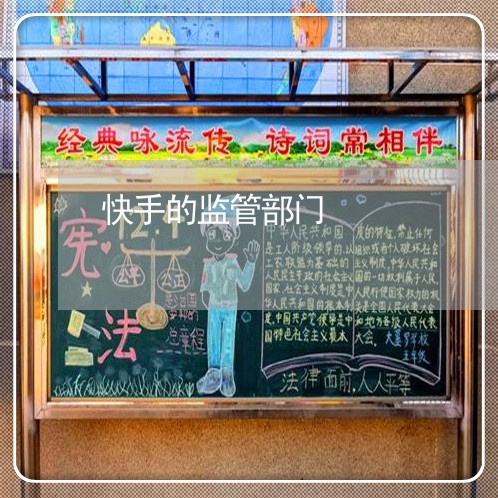 经典咏流传 诗词常相伴
快手的监管部门
12.4
宪
法
公平
公正
总章程
中华人民共和国
是工人阶级领导的,以
工农联盟为基础的
人民民主专政的社会主义
国家,社会主义制度是中
华人民共和国的根本制
度,中国共产党领导是中
国特色社会主义最本
质的特征,禁止任何
组织或者个人破坏社会
主义制度,中华人民共和
国的一切权利属于人民,
人民行使国家权力的机
关是全国人民代表大会
和地方各级人民代表
大会。
五年级
法律面前,人人平等